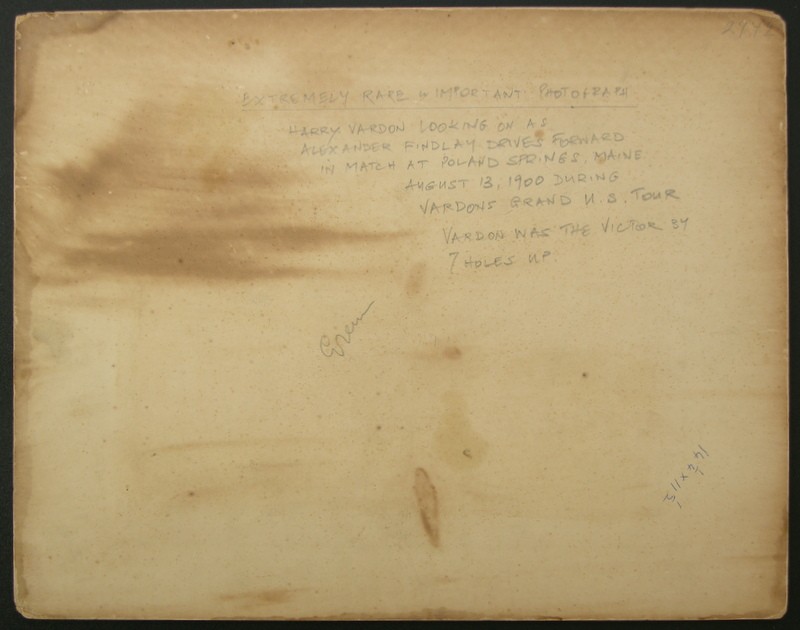 EXTREMELY RARE & IMPORTANT PHOTOGRAPH
HARRY VARDON LOOKING ON AS
ALEXANDER FINDLAY DRIVES FORWARD
IN MATCH AT POLAND SPRINGS, MAINE
AUGUST 13, 1900 DURING
VARDONS GRAND U.S. TOUR
VARDON WAS THE VICTOR BY
7 HOLES UP.